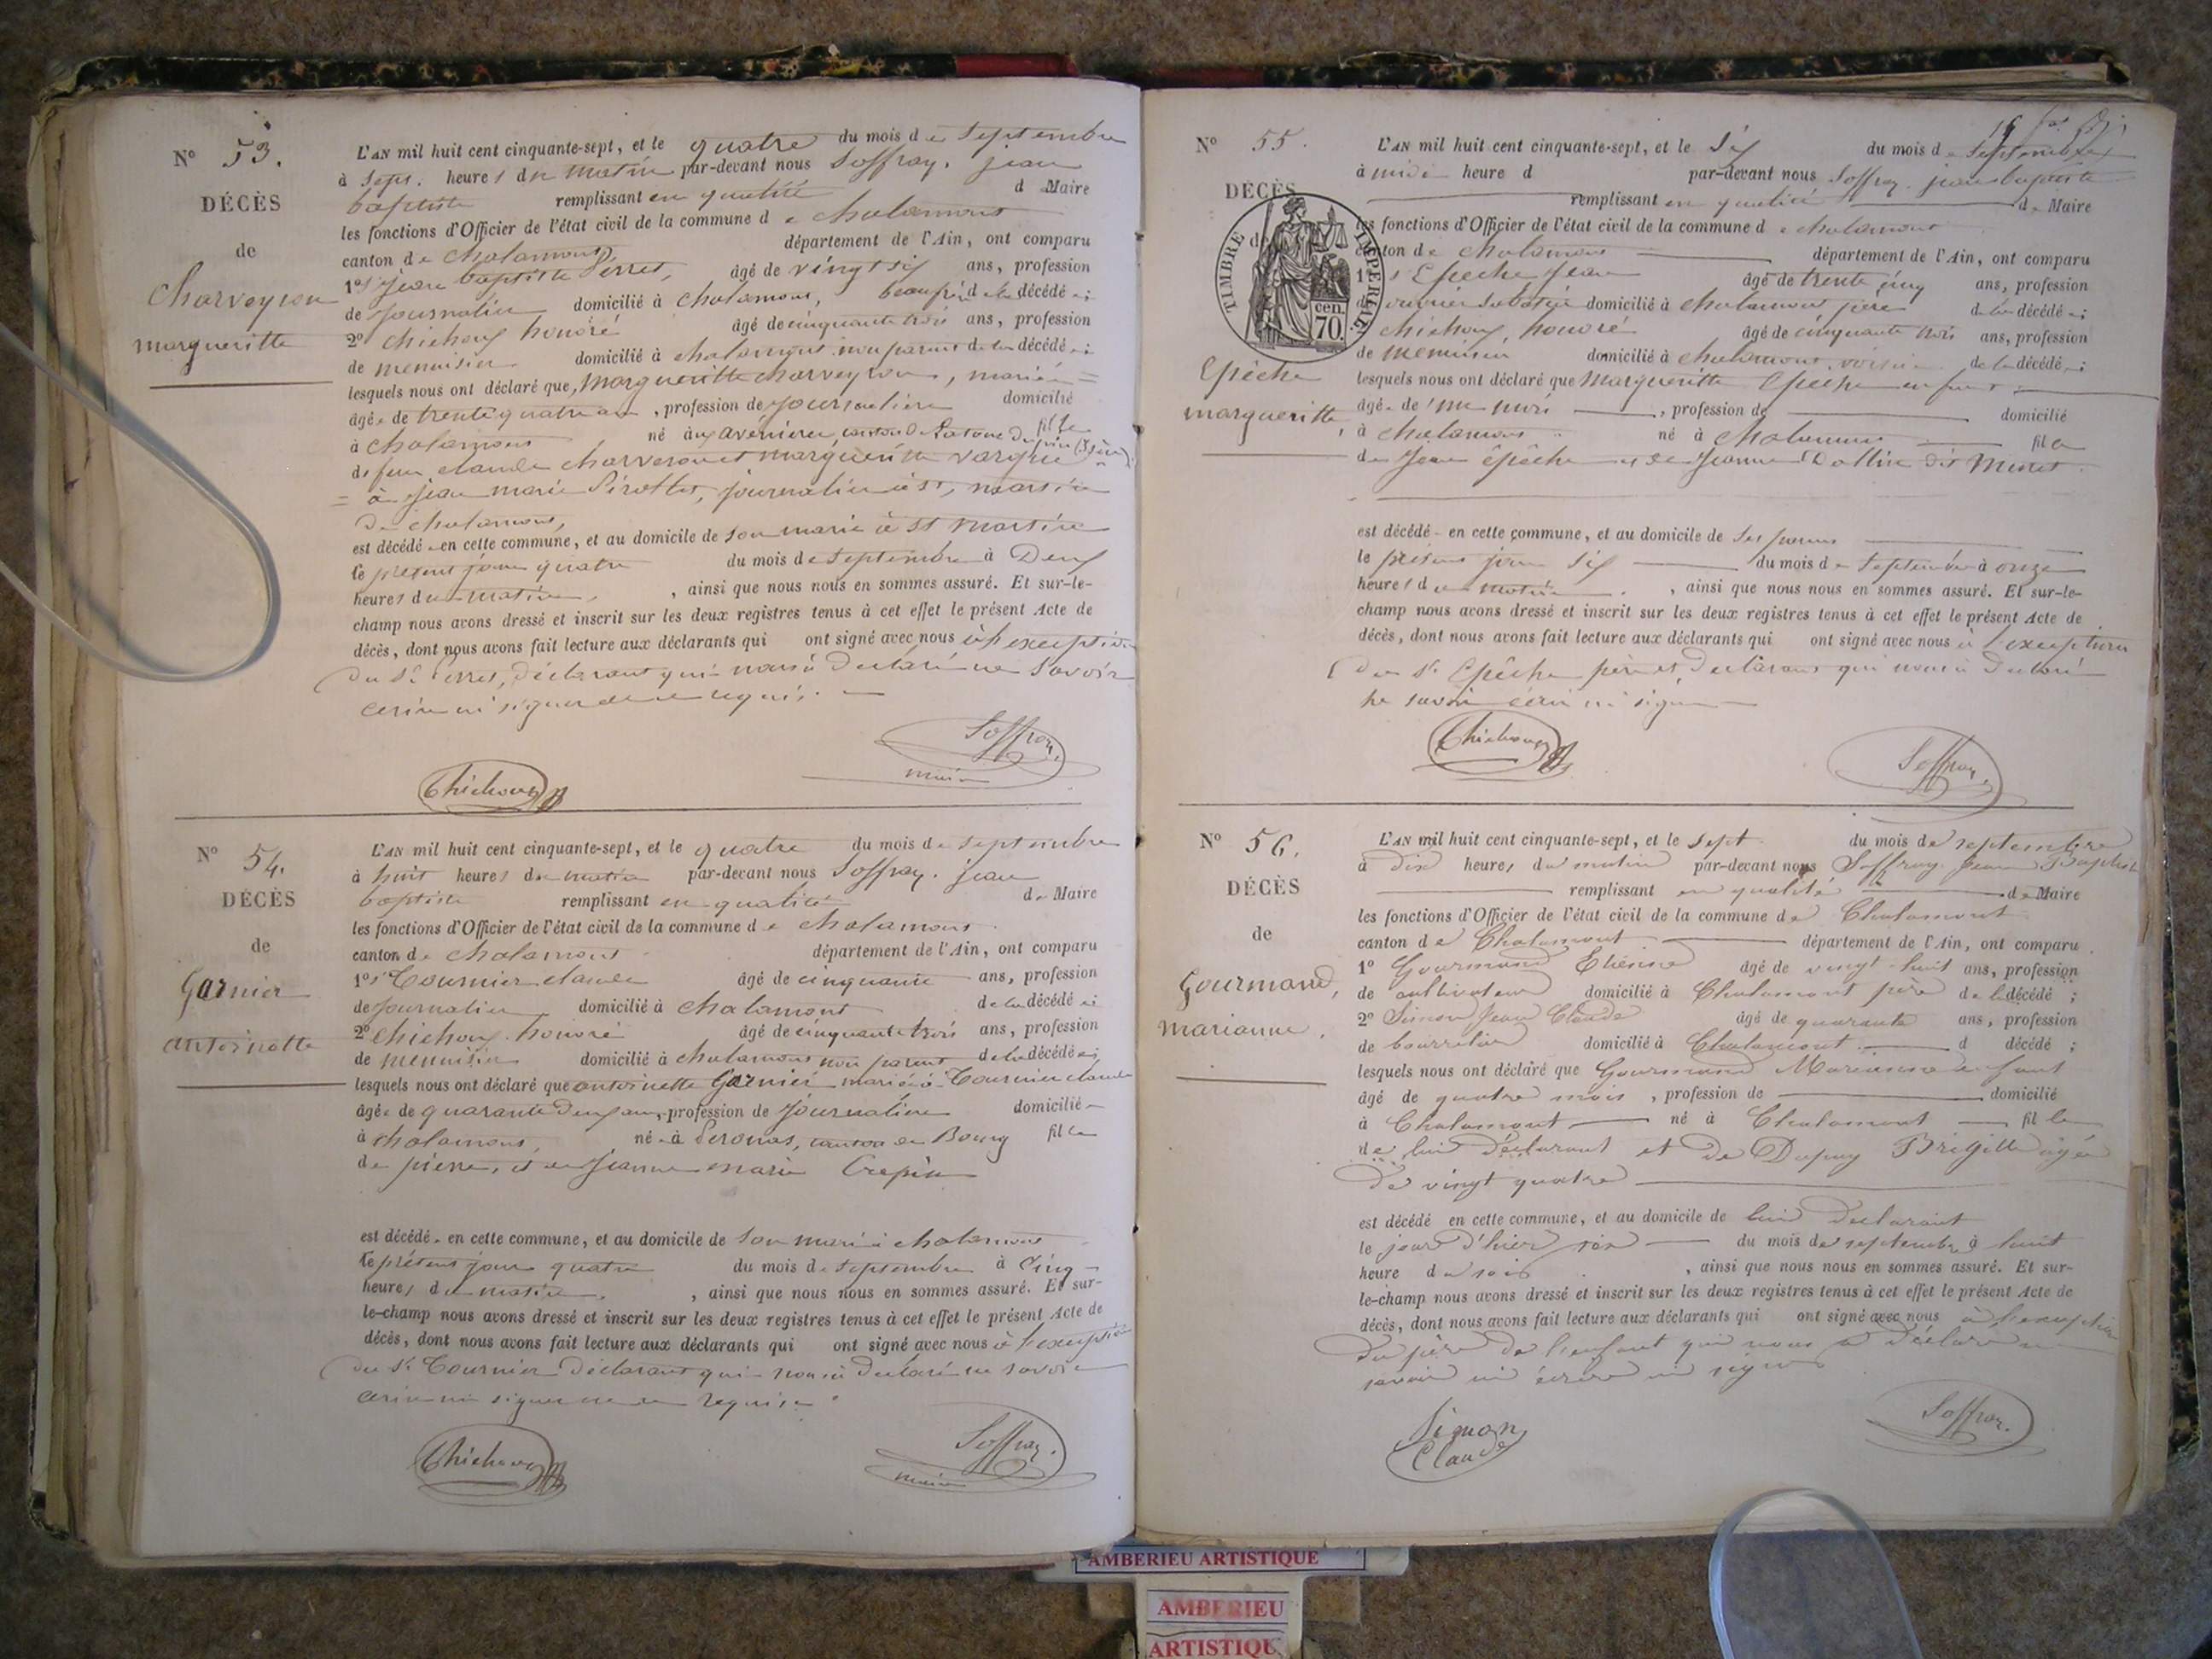 N° 53.
DÉCÈS
de
Charveyron
margueritte
L'AN mil huit cent cinquante-sept, et le quatre du mois de septembre
à sept heures du matin par-devant nous Soffray, jean
baptiste remplissant en qualité d Maire
les fonctions d'Officier de l'état civil de la commune de chalamont
canton de chalamont, département de l'Ain, ont comparu
1° jean baptiste Perret, âgé de vingt six ans, profession
de journalier domicilié à chalamont, beaufré de la décédée;
2° chichoux honoré âgé de cinquante trois ans, profession
de menuisier domicilié à chalamont non parent de la décédée;
lesquels nous ont déclaré que, Margueritte charveyron, mariée =
âgée de trente quatre ans, profession de journalière domicilié
à chalamont né aux avenieres, canton de Latour Dupin (isère) fille
de feu claude charveron et margueritte
= à jean marie Pirollet, journalier à st, martin
de chalamont,
est décédée en cette commune, et au domicile de son marie à st martin
le présent jour quatre du mois de septembre à Deux
heures du matin, ainsi que nous nous en sommes assuré. Et sur-le-
champ nous avons dressé et inscrit sur les deux registres tenus à cet effet le présent Acte de
décès, dont nous avons fait lecture aux déclarants qui ont signé avec nous à l'exception
du Sr Perret, déclarant qui nous à declaré ne savoir
ecrire ni signer de ce requis.
Soffray,
maire
Chichoux
N° 54.
DÉCÈS
de
Garnier
antoinette
L'AN mil huit cent cinquante-sept, et le quatre du mois de septembre
à huit heures du matin par-devant nous Soffray. jean
baptiste remplissant en qualité de Maire
les fonctions d'Officier de l'état civil de la commune de chalamont
canton de chalamont département de l'Ain, ont comparu
1° Tournier claude âgé de cinquante ans, profession
de journalier domicilié à chalamont de la décédée
2° chichoux honoré âgé de cinquante trois ans, profession
de menuisier domicilié à chalamont non parent de la décédée;
lesquels nous ont déclaré que antoinette Garnier mariée à Tournier claude
âgée de quarante deux ans, profession de journalière domiciliée
à chalamont, née à Peronas, canton de Bourg fille
de pierre, et de jeanne marie Crepin
est décédée en cette commune, et au domicile de son mari à chalamont
le présent jour quatre du mois de septembre à cinq
heures du matin, ainsi que nous nous en sommes assuré. Et sur-
le-champ nous avons dressé et inscrit sur les deux registres tenus à cet effet le présent Acte de
décès, dont nous avons fait lecture aux déclarants qui ont signé avec nous à l'exception
du Sr Tournier déclarant qui nous à declaré ne savoir
ecrire ni signer de ce requis.
Chichoux
Soffray.
maire
N° 55.
DÉCÈS
TIMBRE IMPÉRIAL
cen. 70.
Epêche
margueritte
L'AN mil huit cent cinquante-sept, et le six du mois de septembre
à midi heure d par-devant nous Soffray. jean baptiste
remplissant en qualité de Maire
les fonctions d'Officier de l'état civil de la commune de chalamont
canton de chalamont département de l'Ain, ont comparu
1° Epeche Jean âgé de trente cinq ans, profession
ouvrier sabotier domicilié à chalamont père de la décédée;
chichoux, honoré âgé de cinquante trois ans, profession
de menuisier domicilié à chalamont, voisin de la décédée;
lesquels nous ont déclaré que Margueritte Epeche enfant
âgée de un mois, profession de domicilié
à chalamont né à chalamont fille
de Jean épêche et de Jeanne
est décédée en cette commune, et au domicile de ses parents
le présent jour six du mois de septembre à onze
heures du matin, ainsi que nous nous en sommes assuré. Et sur-le-
champ nous avons dressé et inscrit sur les deux registres tenus à cet effet le présent Acte de
décès, dont nous avons fait lecture aux déclarants qui ont signé avec nous à l'exception
du Sr Epêche père et declarant qui nous à declaré
ne savoir écrire ni signer
Chichoux
Soffray,
N° 56.
DÉCÈS
de
Gourmand,
marianne.
L'AN mil huit cent cinquante-sept, et le sept du mois de septembre
à dix heures du matin par-devant nous Soffray Jean Baptiste
remplissant en qualité de Maire
les fonctions d'Officier de l'état civil de la commune de Chalamont
canton de Chalamont département de l'Ain, ont comparu
1° Gourmand Etienne âgé de vingt-huit ans, profession
de cultivateur domicilié à Chalamont père de la décédé;
2° Simon Jean Claude âgé de quarante ans, profession
de bourrelier domicilié à Chalamont d décédé;
lesquels nous ont déclaré que Gourmand Marianne enfant
âgé de quatre mois, profession de domicilié
à Chalamont né à Chalamont fille
de lui Déclarant et de Dupuy Brigitte âgée
de vingt quatre
est décédé en cette commune, et au domicile de lui Declarant
le jour d'hier six du mois de septembre à huit
heure du soir, ainsi que nous nous en sommes assuré. Et sur-
le-champ nous avons dressé et inscrit sur les deux registres tenus à cet effet le présent Acte de
décès, dont nous avons fait lecture aux déclarants qui ont signé avec nous à l'exception
du père de l'enfant qui nous a déclaré ne
savoir ni écrire ni signer
Simon
Claude
Soffray.
AMBERIEU ARTISTIQUE
AMBERIEU
ARTISTIQU